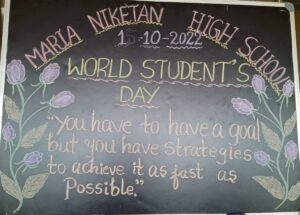 MARIA NIKETAN HIGH SCHOOL
15-10-2022
WORLD STUDENT'S
DAY
"You have to have a goal
but you have strategies
to achieve it as fast as
Possible."